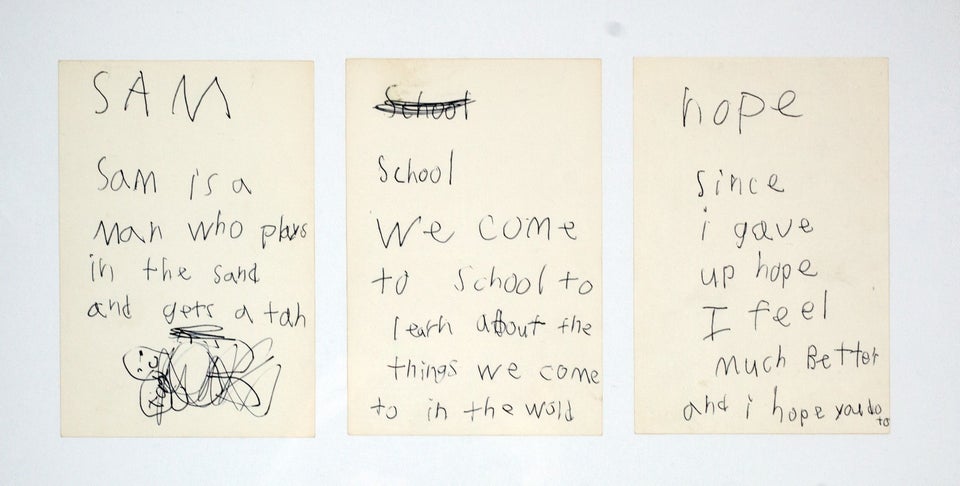 SAM
Sam is a
man who plays
in the sand
and gets a tan
School
School
We come
to School to
learn about the
things we come
to in the wold
hope
since
i gave
up hope
I feel
much Better
and i hope you do
to